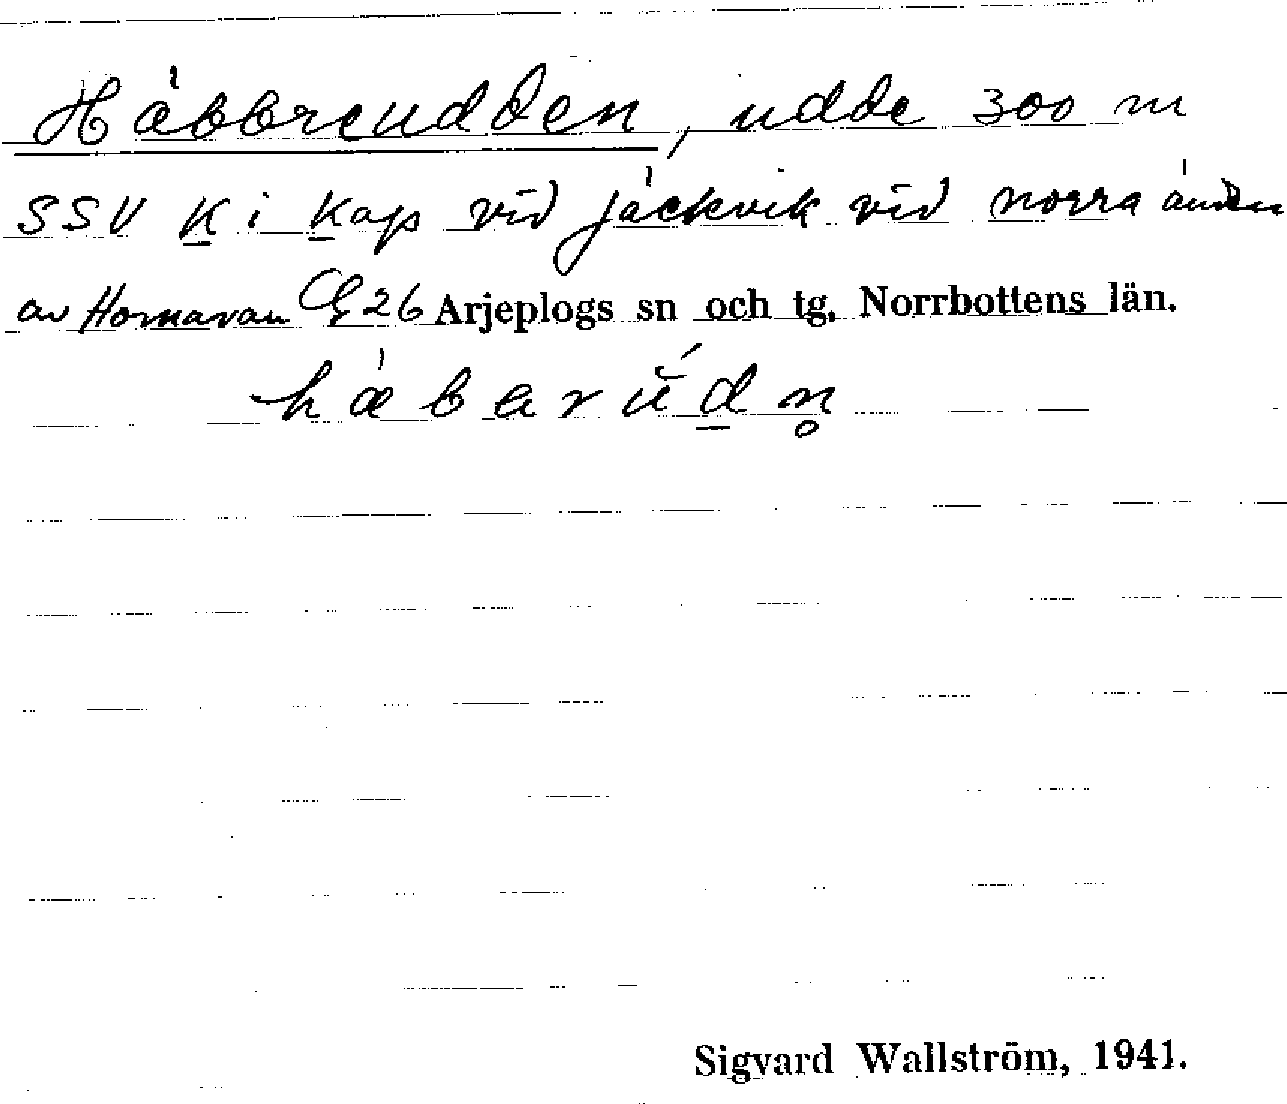 Häbbreudden, udde 300 m
SSV K i Kap vid Jäckvik vid norra änden
av Hornavan Cg 26 Arjeplogs sn och tg, Norrbottens län.
Sigvard Wallström, 1941.